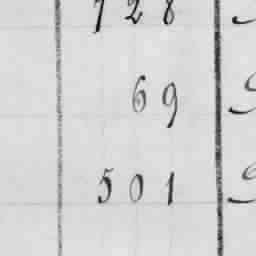 728
69
501